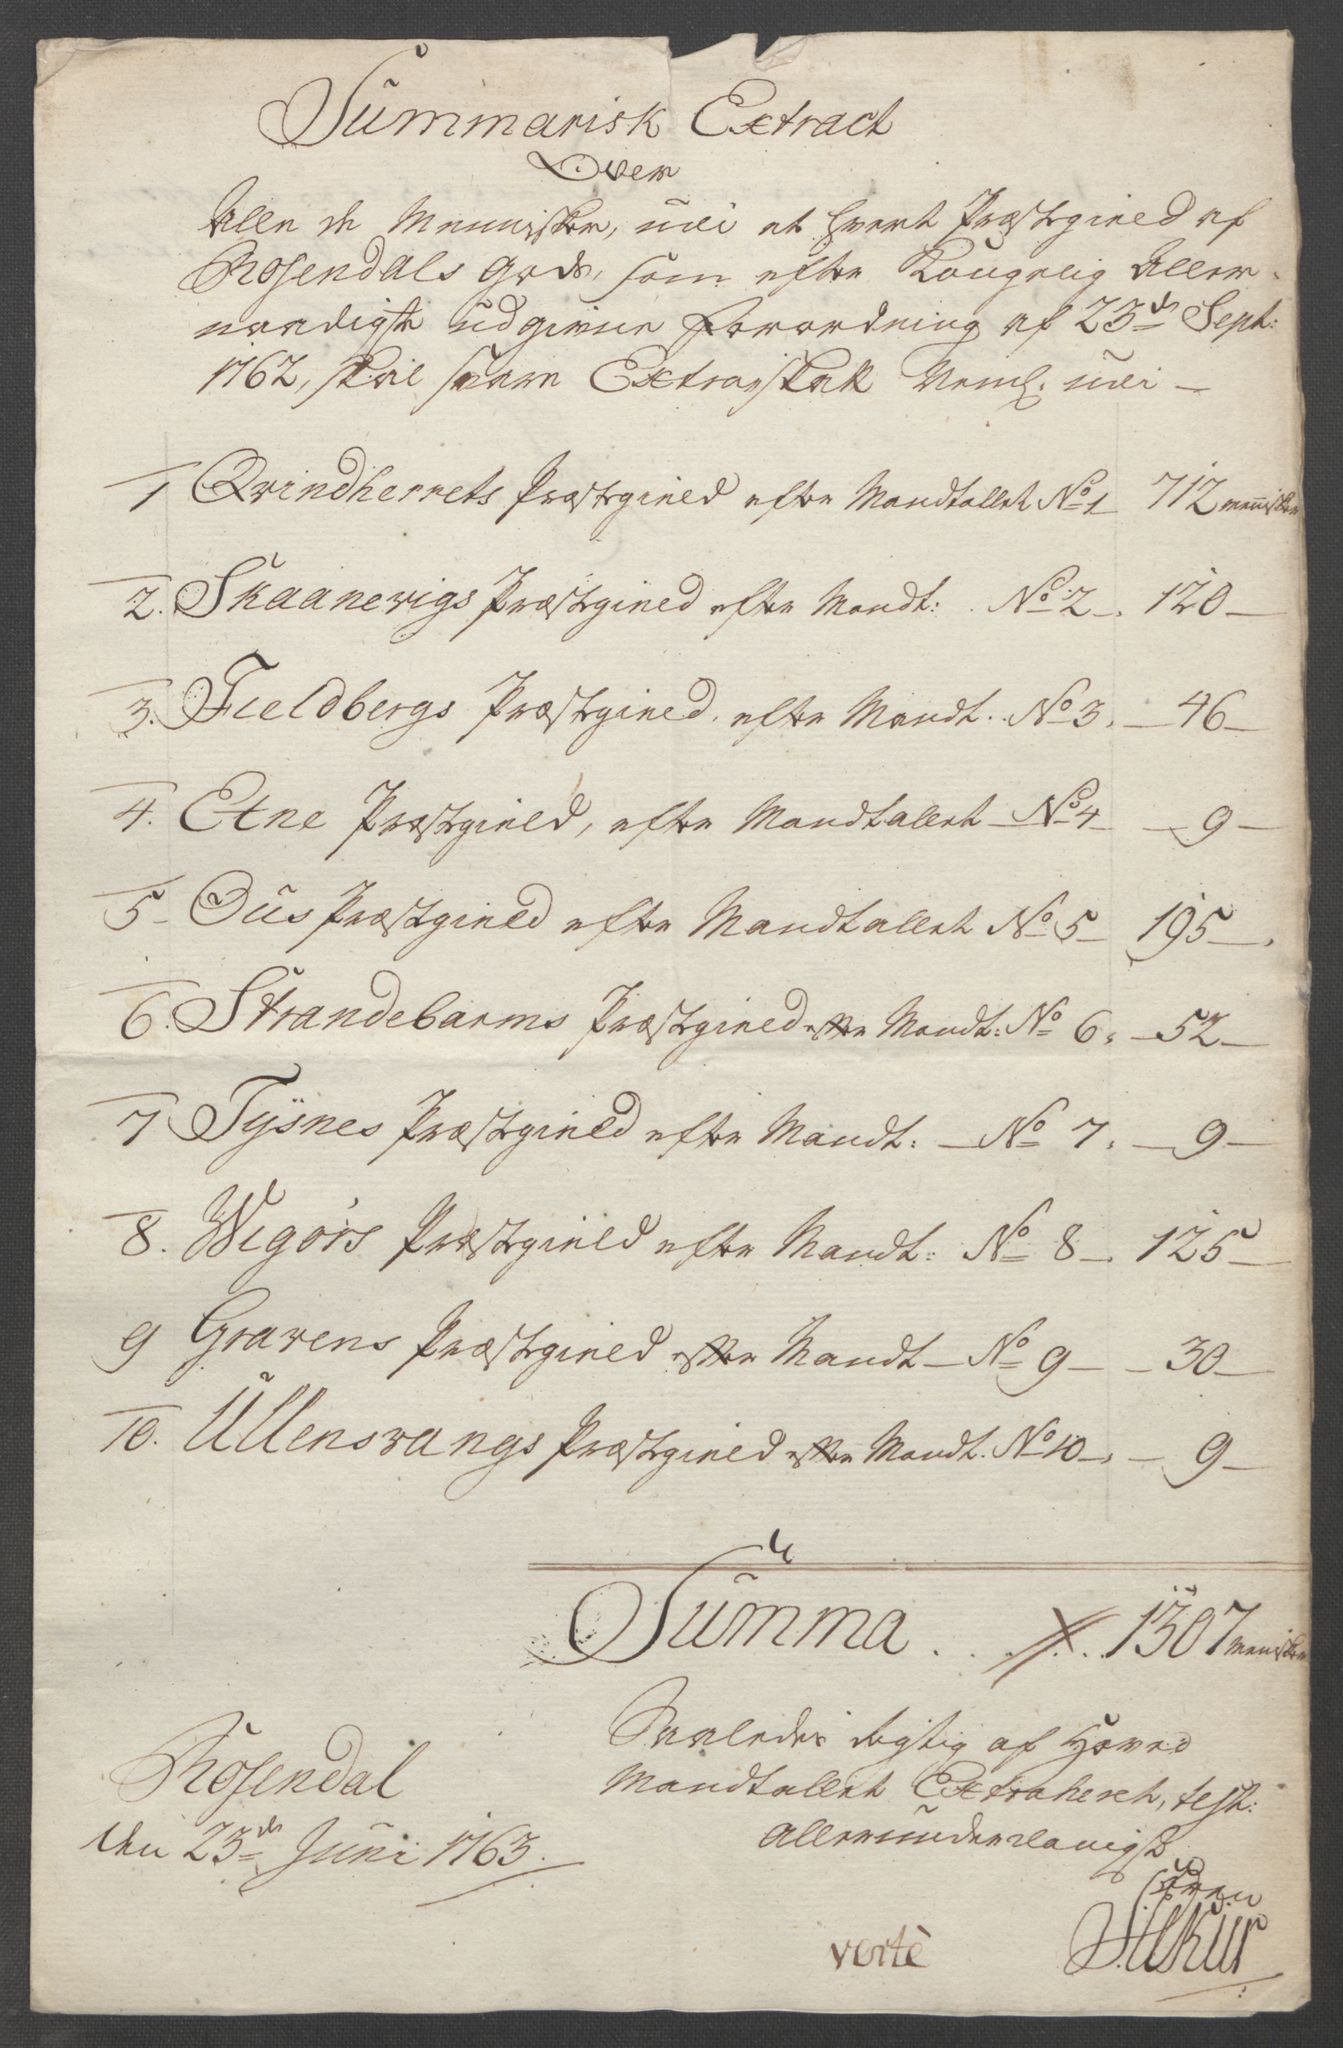 Summarisk Extract
Over
Alle de Mennisker, udi et hvert Præstegield af
Rosendals Gods, som efter Kongelig Aller-
naadigste udgivne Forordning af 23de Sept:
1762, skal svare Extraskatt Neml. udi -
1 Qvindherrets Præstegield efter Mandtallet No 1 712 mennisker
2. Skaanevigs Præstegield efter Mandt: No 2. 120
3. Fieldbergs Præstegield, efter Mandt. No 3. 46
4. Etne Præstegield, efter Mandtallet No 4 9
5 Ous Præstegield efter Mandtallet No 5 195
6. Strandebarms Præstegield efter Mandt: No 6. 52
7 Tysnes Præstegield efter Mandt: No 7. 9
8. Wigörs Præstegield efter Mandt: No 8. 125
9 Gravens Præstegield efter Mandt No 9 30
10. Ullensvangs Præstegield efter Mandt. No 10. 9
Summa . . . 1307 mennisker
Saaledes rigtig af Hoved
Mandtallet Extraheret, test:
Allerunderdanigst
Rosendal
den 23de Juni 1763.
Sören
vertè